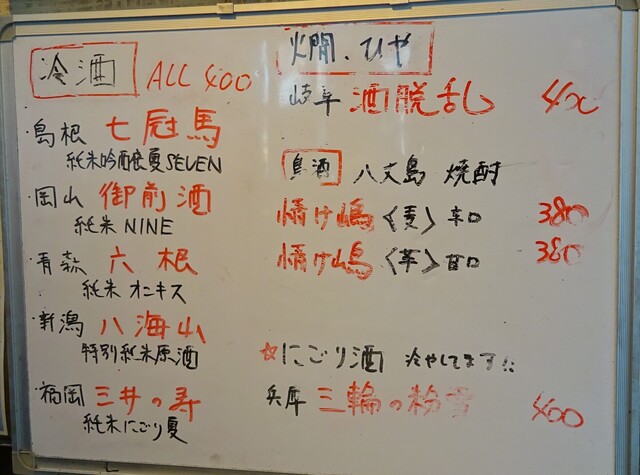 冷酒 ALL 400
・島根 七冠馬
純米吟醸夏SEVEN
・岡山 御前酒
純米 NINE
・青森 六根
純米 オニキス
・新潟 八海山
特別純米原酒
・福岡 三井の寿
純米にごり夏
燗、ひや
岐阜 酒脱乱 400
島酒 八丈島 焼酎
情け嶋〈麦〉辛口 380
情け嶋〈芋〉甘口 380
☆にごり酒 冷やしてます!!
兵庫 三輪の粉雪 400